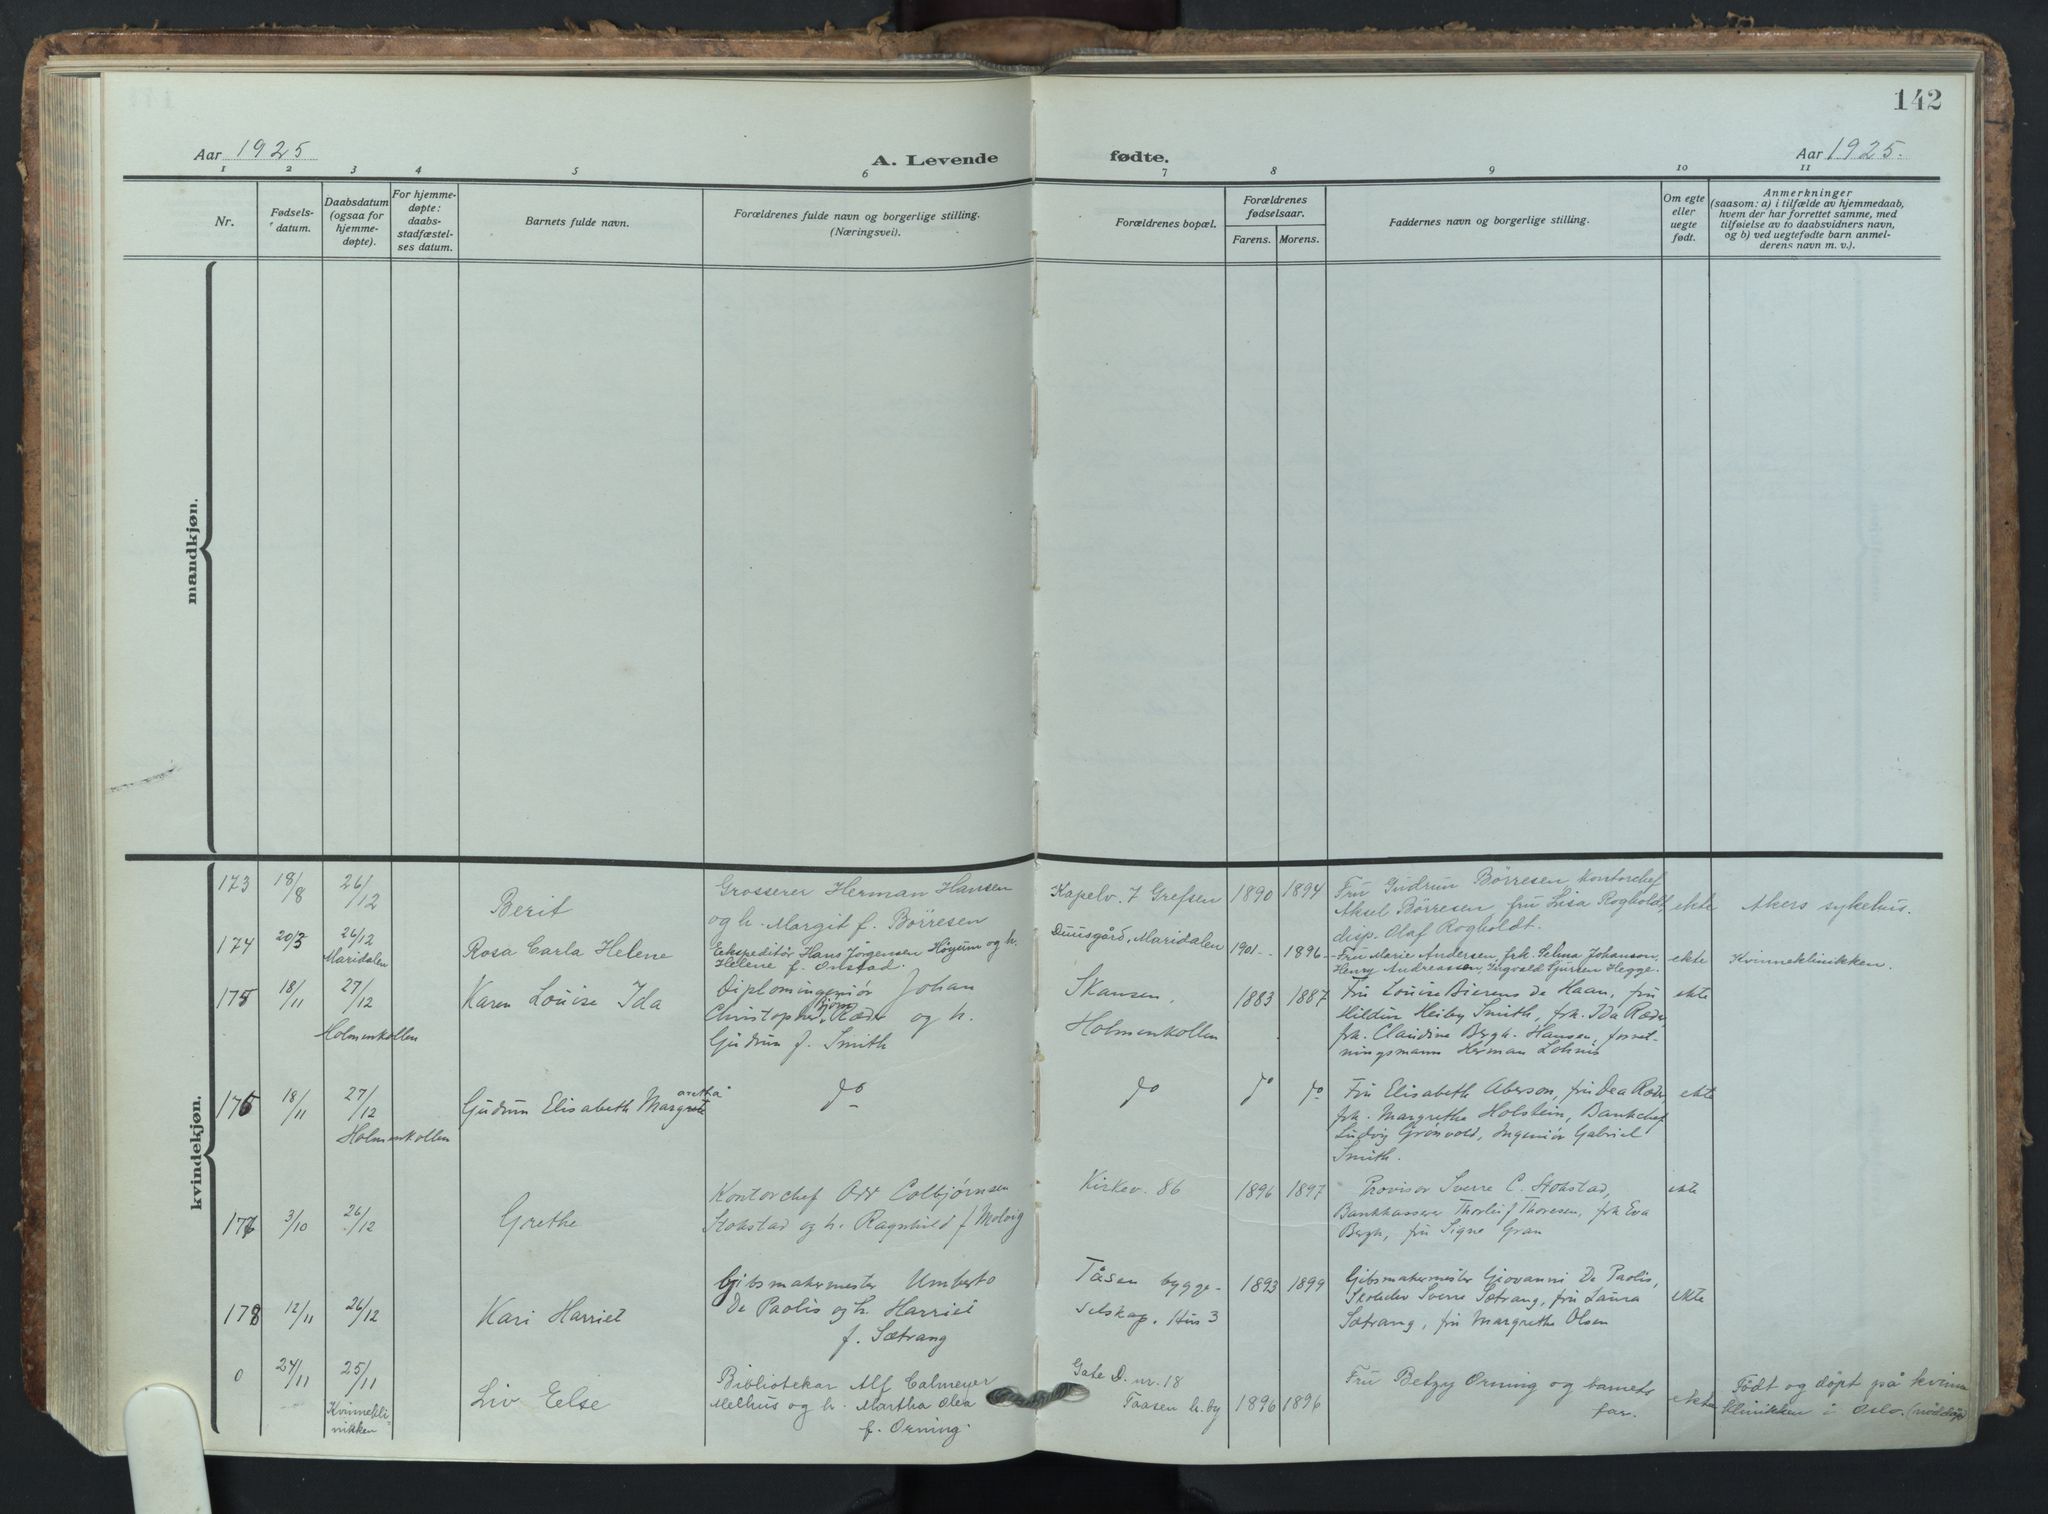 142
Aar 1925
A. Levende
fødte.
Aar 1925.
1 2 3 4 5 6 7 8 9 10 11
Nr.
Fødsels-
datum.
Daabsdatum
(ogsaa for
hjemme-
døpte).
For hjemme-
døpte:
daabs-
stadfæstel-
ses datum.
Barnets fulde navn.
Forældrenes fulde navn og borgerlige stilling.
(Næringsvei).
Forældrenes bopæl.
Forældrenes
fødselsaar.
Farens. Morens.
Faddernes navn og borgerlige stilling.
Om egte
eller
uegte
født.
Anmerkninger
(saasom: a) i tilfælde av hjemmedaab,
hvem der har forrettet samme, med
tilføielse av to daabsvidners navn,
og b) ved uegtefødte barn anmel-
derens navn m. v.).
mandkjøn.
kvindekjøn.
173 18/8 26/12 Berit
Grosserer Herman Hansen
og h. Margit f. Börresen
Kapelv. 7 Grefsen 1890 1894
Fru Gudrun Börresen kontorchef
Aksel Börresen, fru Lisa Rogholdt,
disp. Olaf Rogholdt.
ekte Akers sykehus.
174 20/3 26/12 Maridalen
Rosa Carla Helene
Ekspeditör Hans Jörgensen Höyum og h.
Helene f. Onstad.
Duusgård, Maridalen 1901 1896
Fru Marie Andersen, frk. Selma Johanson,
Henry Andreassen, Ingvald Sjursen Hegge.
ekte Kvinneklinikken.
175 18/11 27/12
Holmenkollen
Karen Louise Ida
Diplomingeniör Johan
Christopher Bjørn Ræder og h.
Gudrun f. Smith
Skansen,
Holmenkollen
1883 1887
Fru Louise Bierens de Haan, fru
Hildur Heiby Smith, frk. Ida Ræder
frk. Claudine Bergh-Hansen, forret-
ningsmann Herman Lohnis
ekte
176 18/11 27/12
Holmenkollen
Gudrun Elisabeth Margaretha
do do do do
Fru Elisabeth Aberson, fru Dea Ræder,
frk. Margretha Holstein, Bankchef
Ludvig Grönvold, Ingeniör Gabriel
Smith.
ekte
177 3/10 26/12 Grethe
Kontorchef Odd Colbjørnsen
Stokstad og h. Ragnhild f Molvig
Kirkev. 86 1896 1897
Provisor Sverre C. Stokstad,
Bankkasserer Thorleif Thoresen, frk Eva
Bergh, fru Signe Gran
ekte
178 12/11 26/12 Kari Harriet
Gibsmakermester Umberto
De Paolis og h. Harriet
f. Sætrang
Tåsen bygge-
selskap. Hus 3
1893 1899
Gibsmakermester Giovanni De Paolis,
Sverre Sætrang, fru Laura
Sætrang, fru Margrethe Olsen
ekte
0 24/11 25/11
Kvinnekli-
nikken
Liv Else
Bibliotekar Alf Calmeyer
Melhus og h. Martha Olea
f. Orning.
Gate D. nr. 18
Taasen h.by 1896 1896
Fru Betzy Orning og barnets
far.
ekte
Født og döpt på kvinne
klinikken i Oslo. (nöddöpt